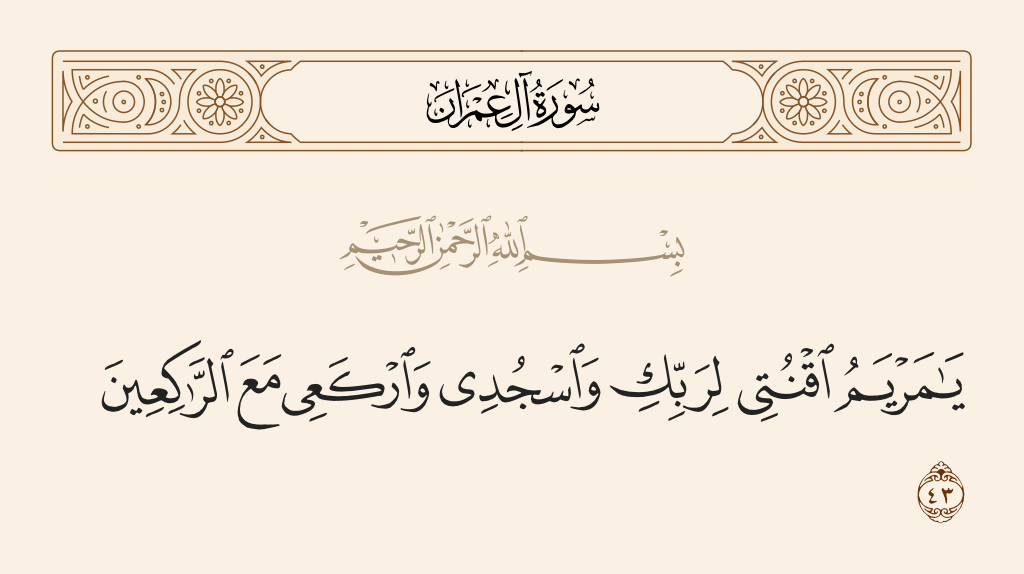 سُورَةُ آلِ عِمْرَان
بِسْمِ ٱللَّهِ ٱلرَّحْمَٰنِ ٱلرَّحِيمِ
يَٰمَرْيَمُ ٱقْنُتِى لِرَبِّكِ وَٱسْجُدِى وَٱرْكَعِى مَعَ ٱلرَّٰكِعِينَ
٤٣